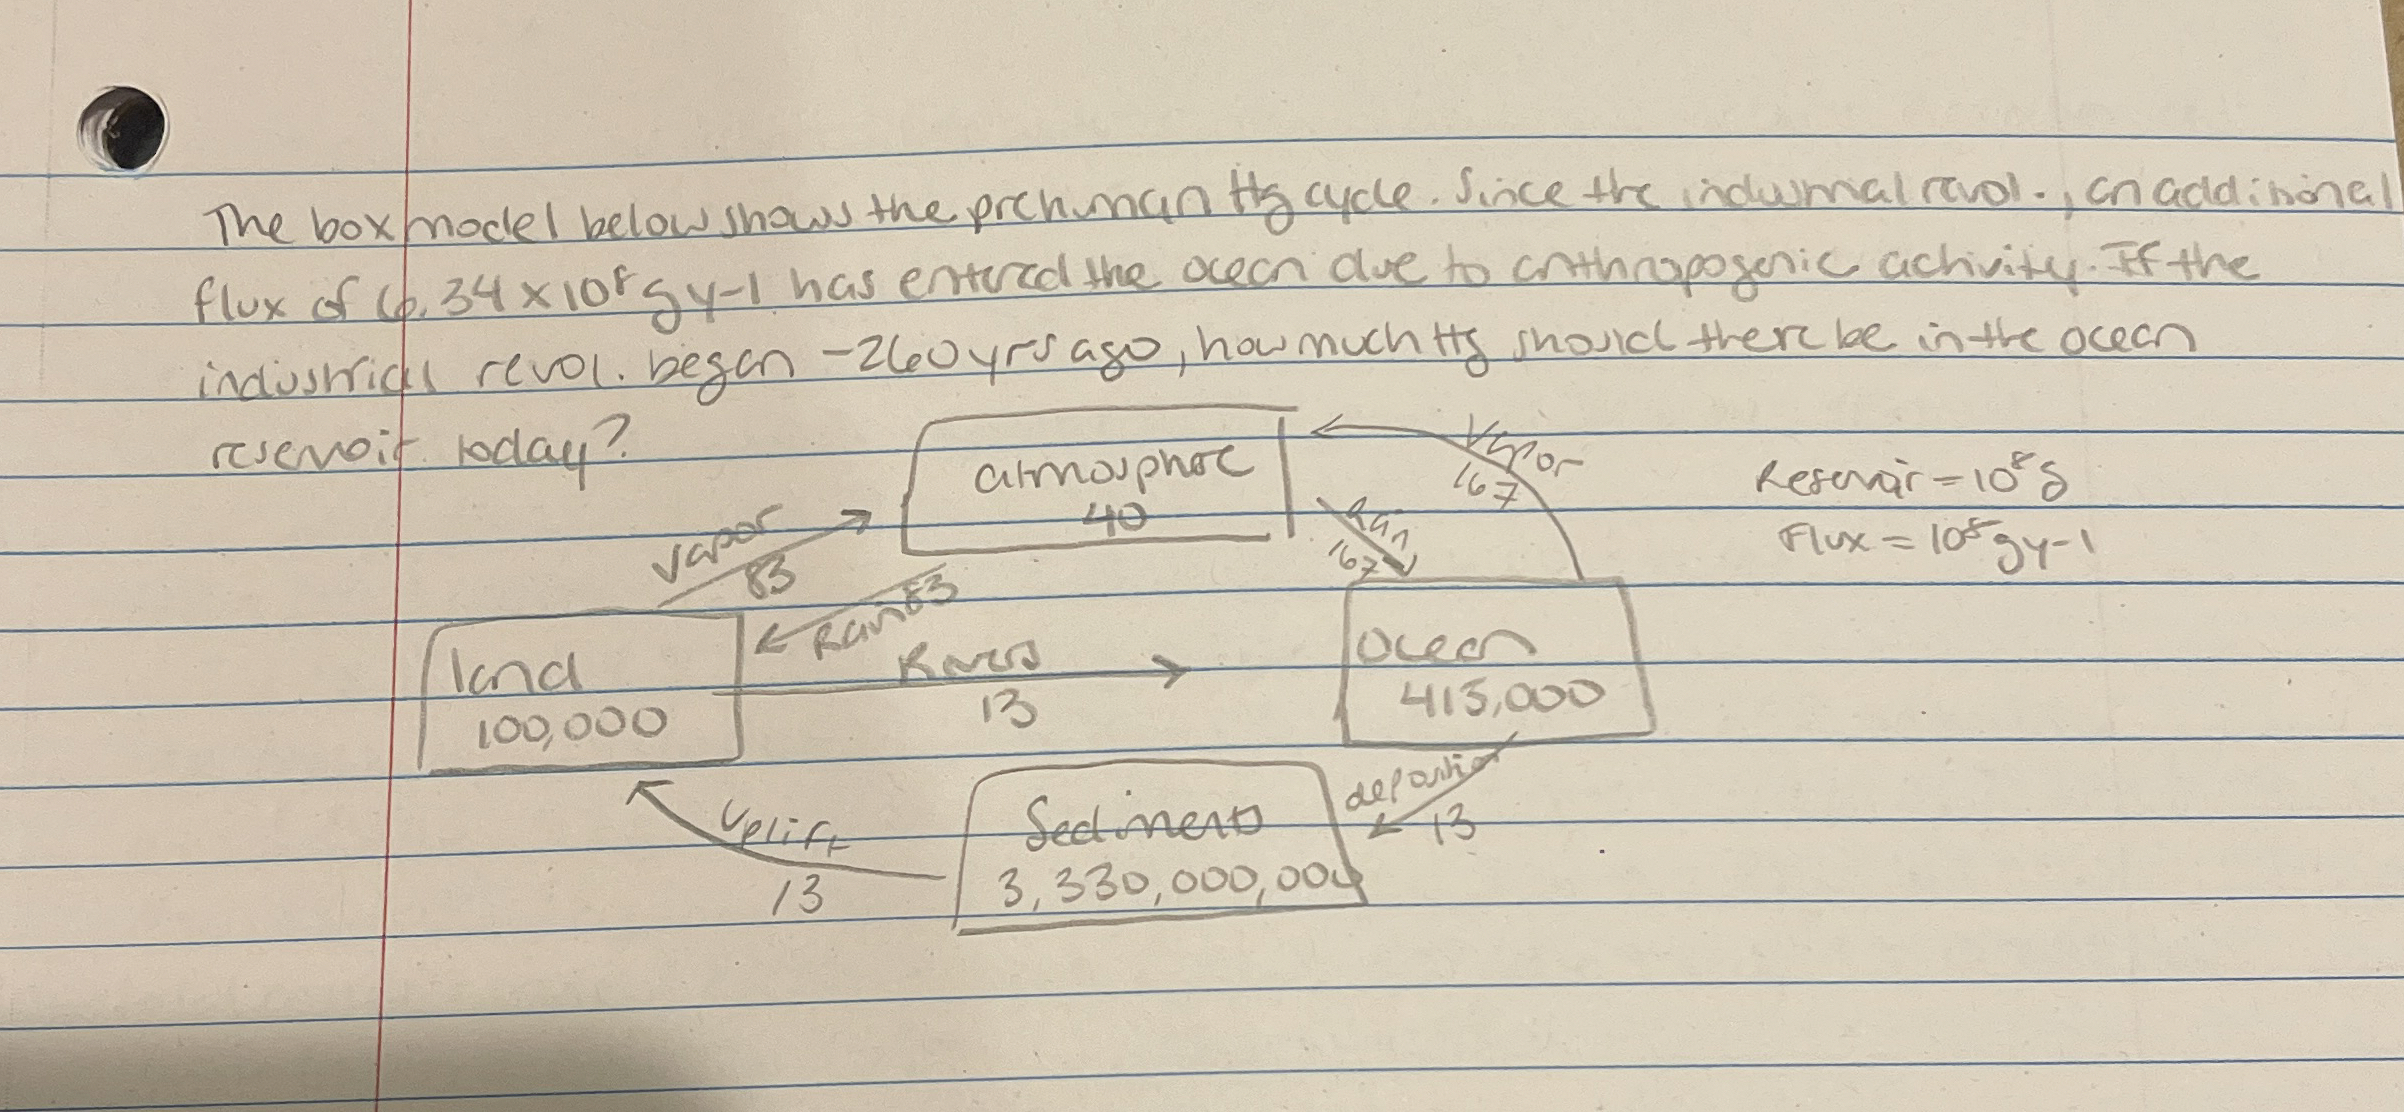 The box model below shows the prehuman Hg cycle. Since the industrial revol., an additional
flux of 6.34 x 10⁸ gy-1 has entered the ocean due to anthropogenic activity. If the
industrial revol. began ~260 yrs ago, how much Hg should there be in the ocean
resevoir today?
atmosphere
40
vapor
167
Rain
167
Reservoir = 10⁸ g
Flux = 10⁸ gy-1
vapor
83
Rain 83
land
100,000
Rivers
13
Ocean
415,000
deposition
13
Uplift
13
Sediments
3,330,000,000